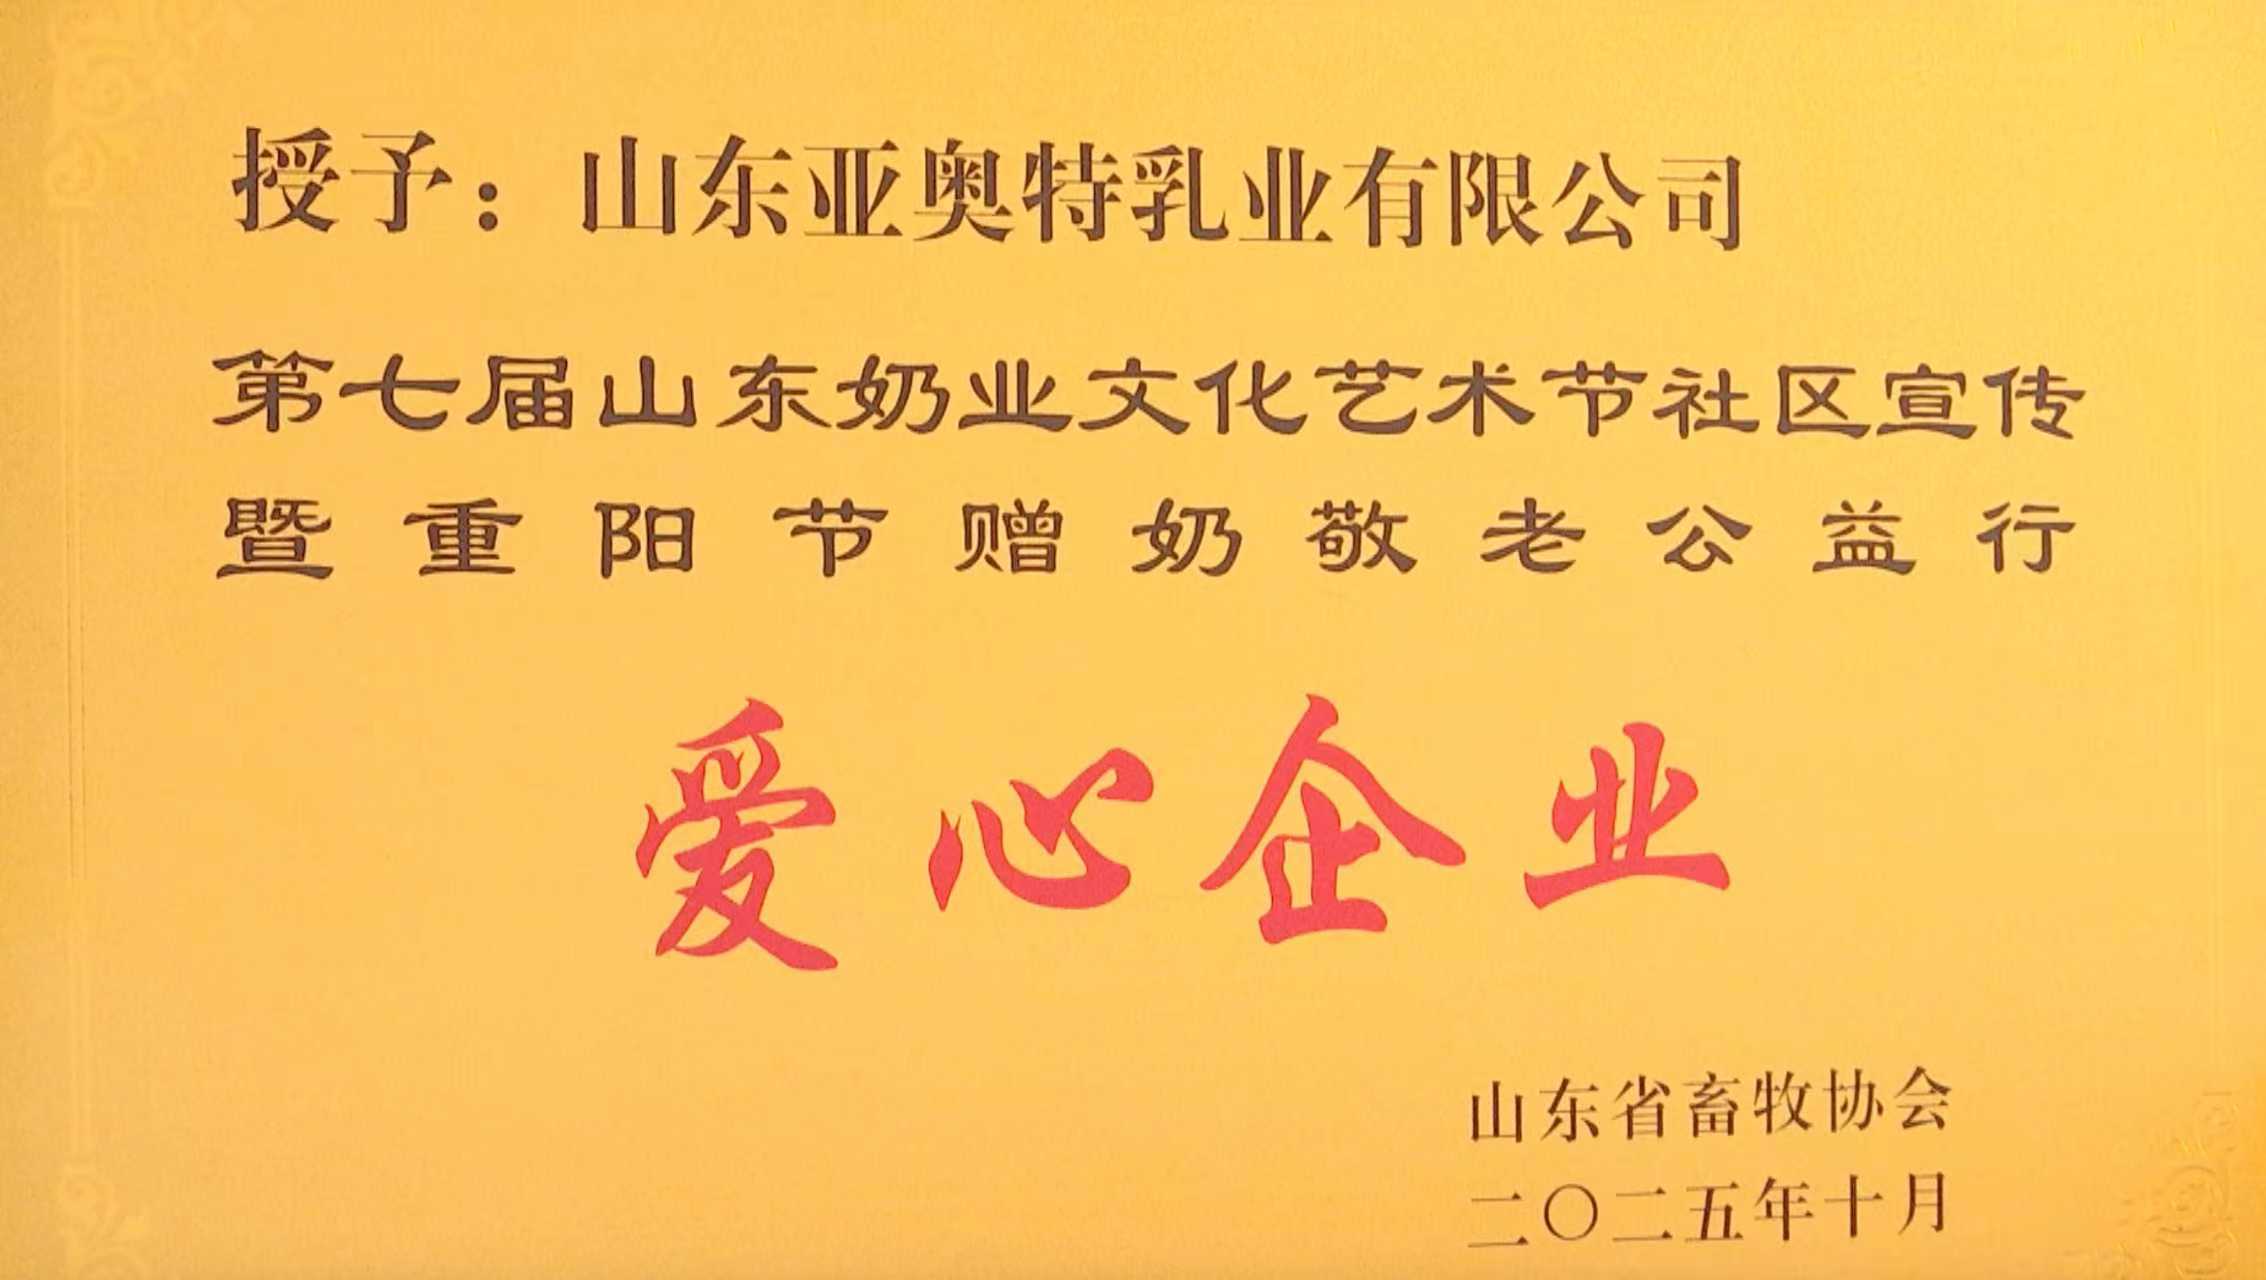 授予：山东亚奥特乳业有限公司
第七届山东奶业文化艺术节社区宣传
暨重阳节赠奶敬老公益行
爱心企业
山东省畜牧协会
二〇二五年十月